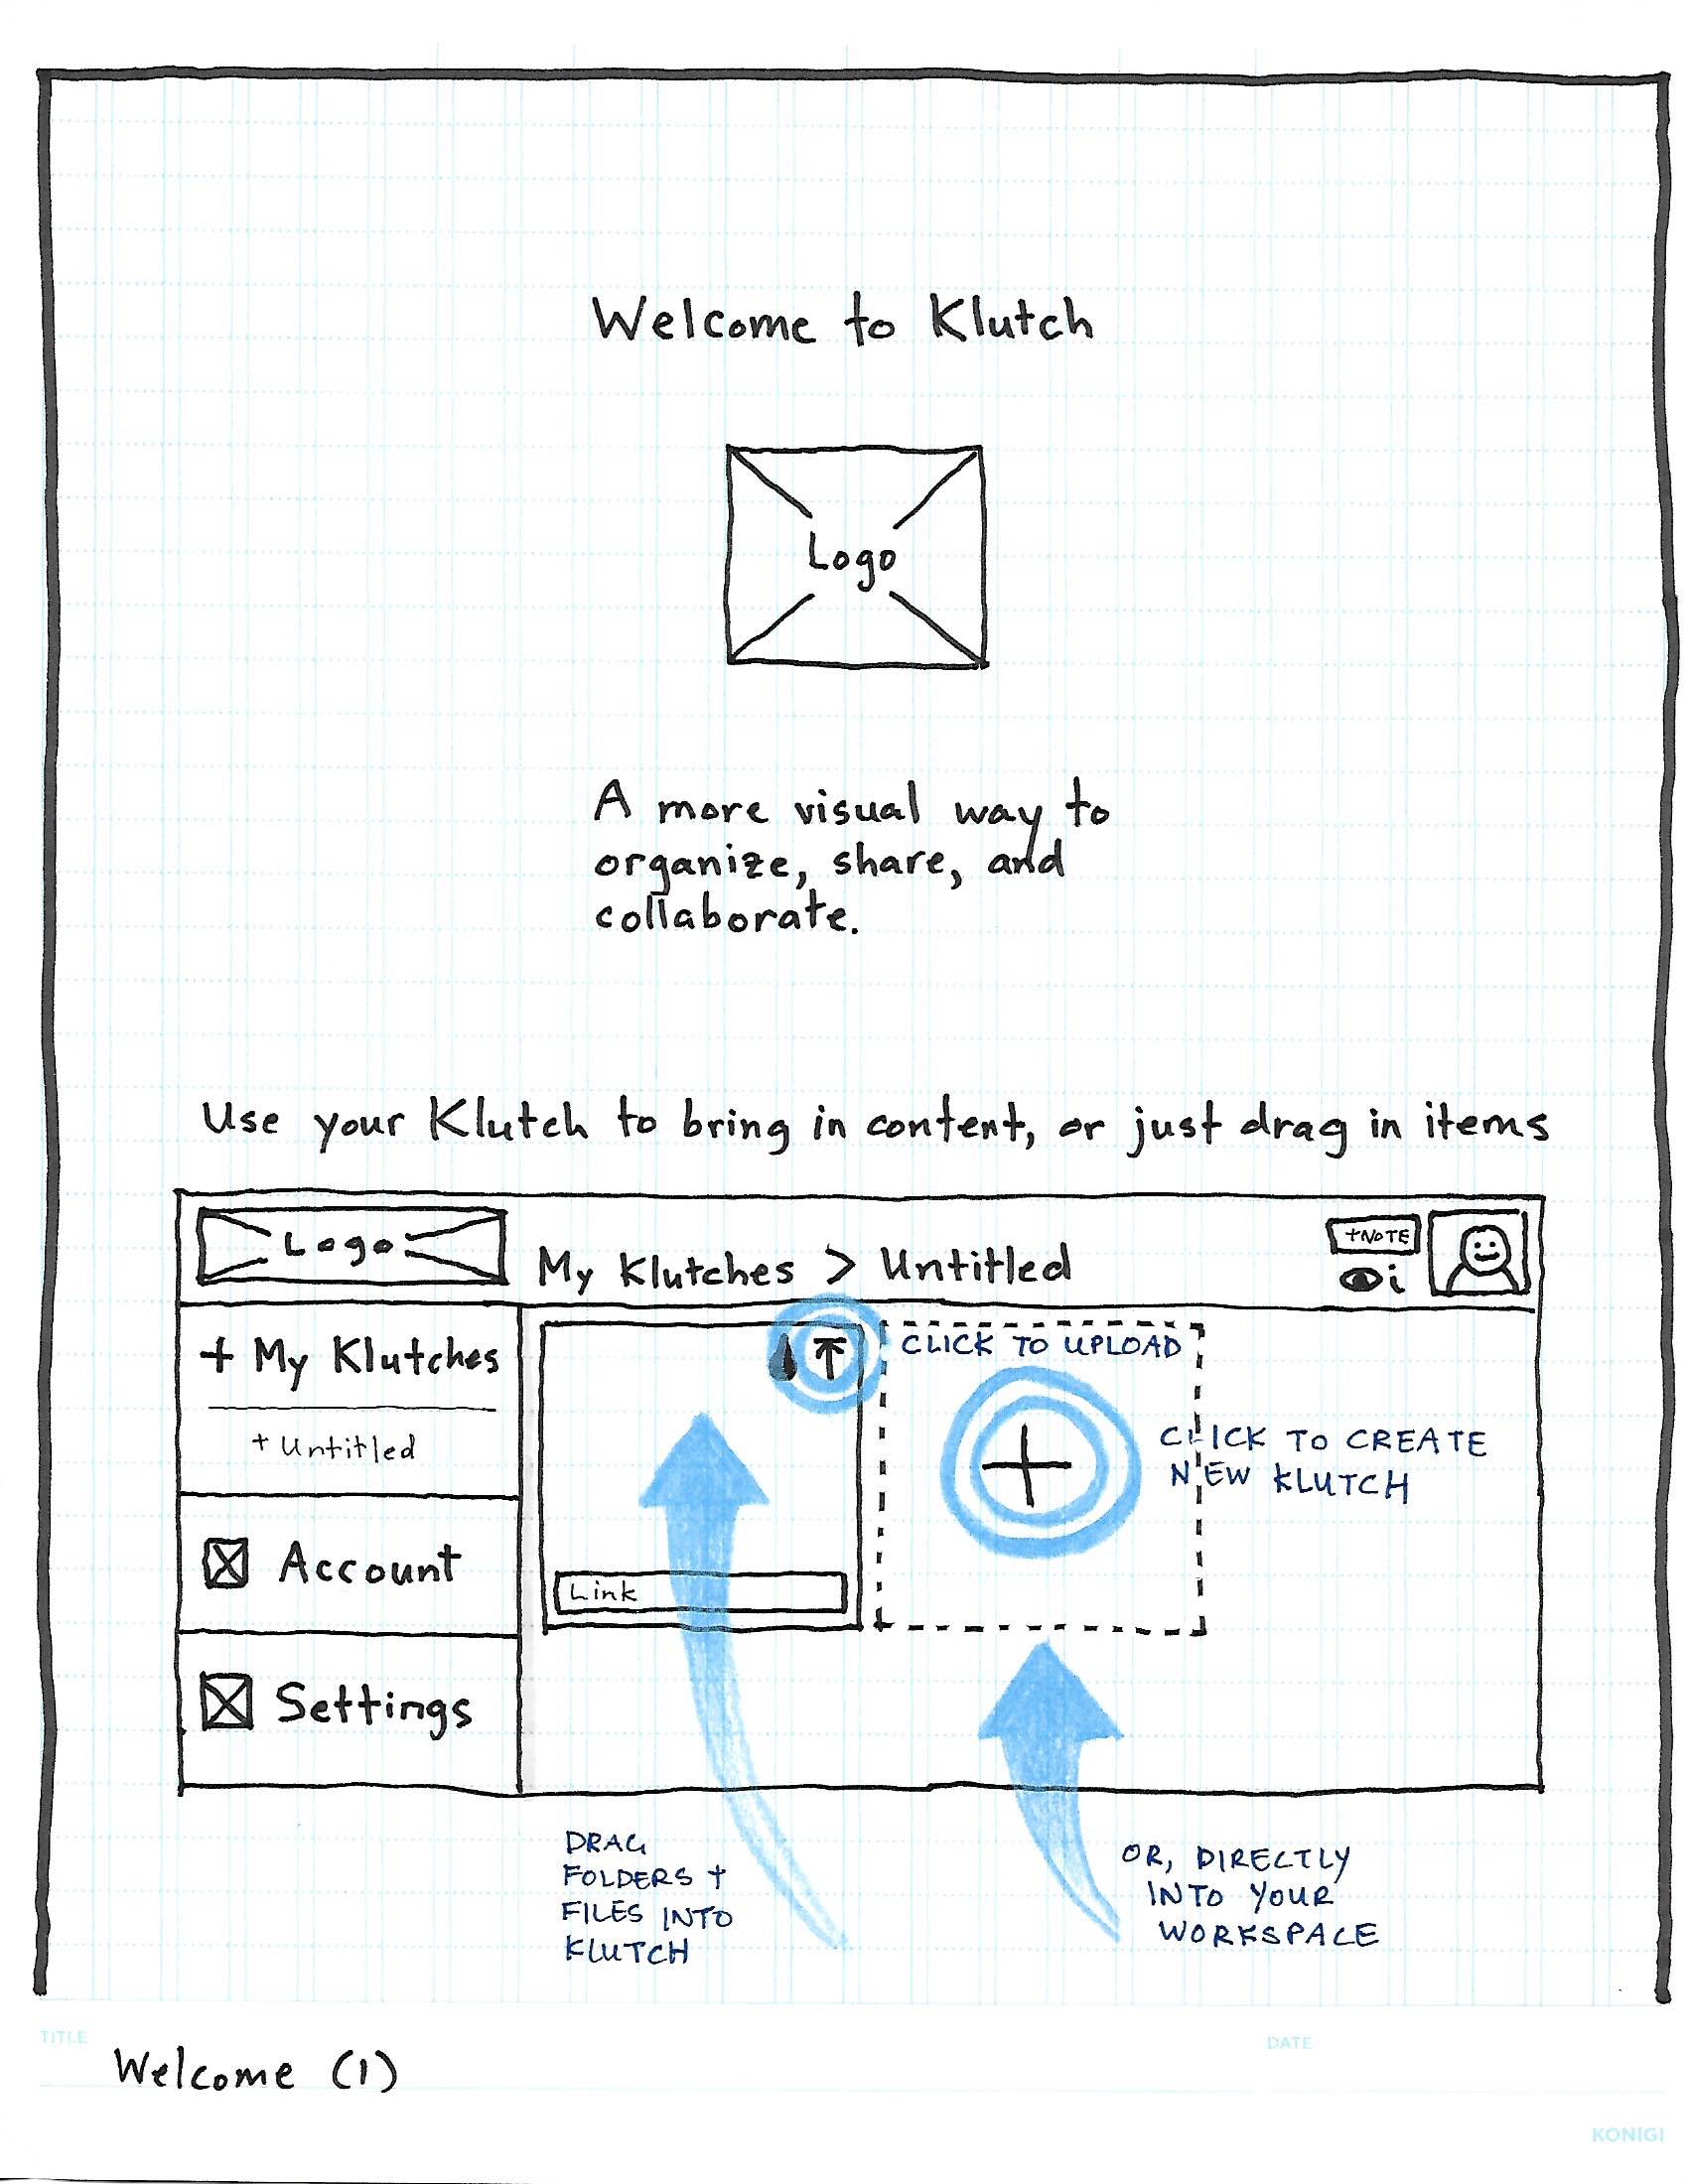 Welcome to Klutch
Logo
A more visual way to
organize, share, and
collaborate.
Use your Klutch to bring in content, or just drag in items
Logo
My Klutches > Untitled
+NOTE
i
+ My Klutches
+ Untitled
Account
Settings
CLICK TO UPLOAD
+
CLICK TO CREATE
NEW KLUTCH
Link
DRAG
FOLDERS +
FILES INTO
KLUTCH
OR, DIRECTLY
INTO YOUR
WORKSPACE
TITLE
Welcome (1)
DATE
KONIGI